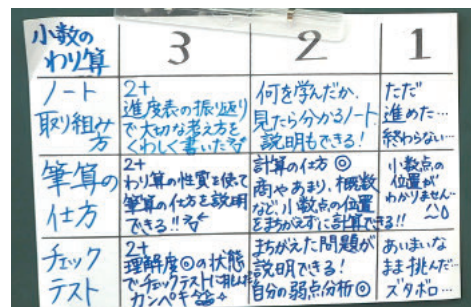 小数の
わり算
3
2
1
ノート
取り組み
方
2+
進度表の振り返り
で大切な考え方を
くわしく書いた
何を学んだか、
見たら分かるノート
説明もできる!
ただ
進めた…
終わらない…
筆算の
仕方
2+
わり算の性質を使って
筆算の仕方を説明
できる!!
計算の仕方◎
商やあまり、概数
など、小数点の位置
をまちがえずに計算できる!!
小数点の
位置が
わかりません…
チェック
テスト
2+
理解度◎の状態
でチェックテストに挑んだ
カンペキ
まちがえた問題が
説明できる!
自分の弱点分析◎
あいまいな
まま挑んだ…
ズタボロ…